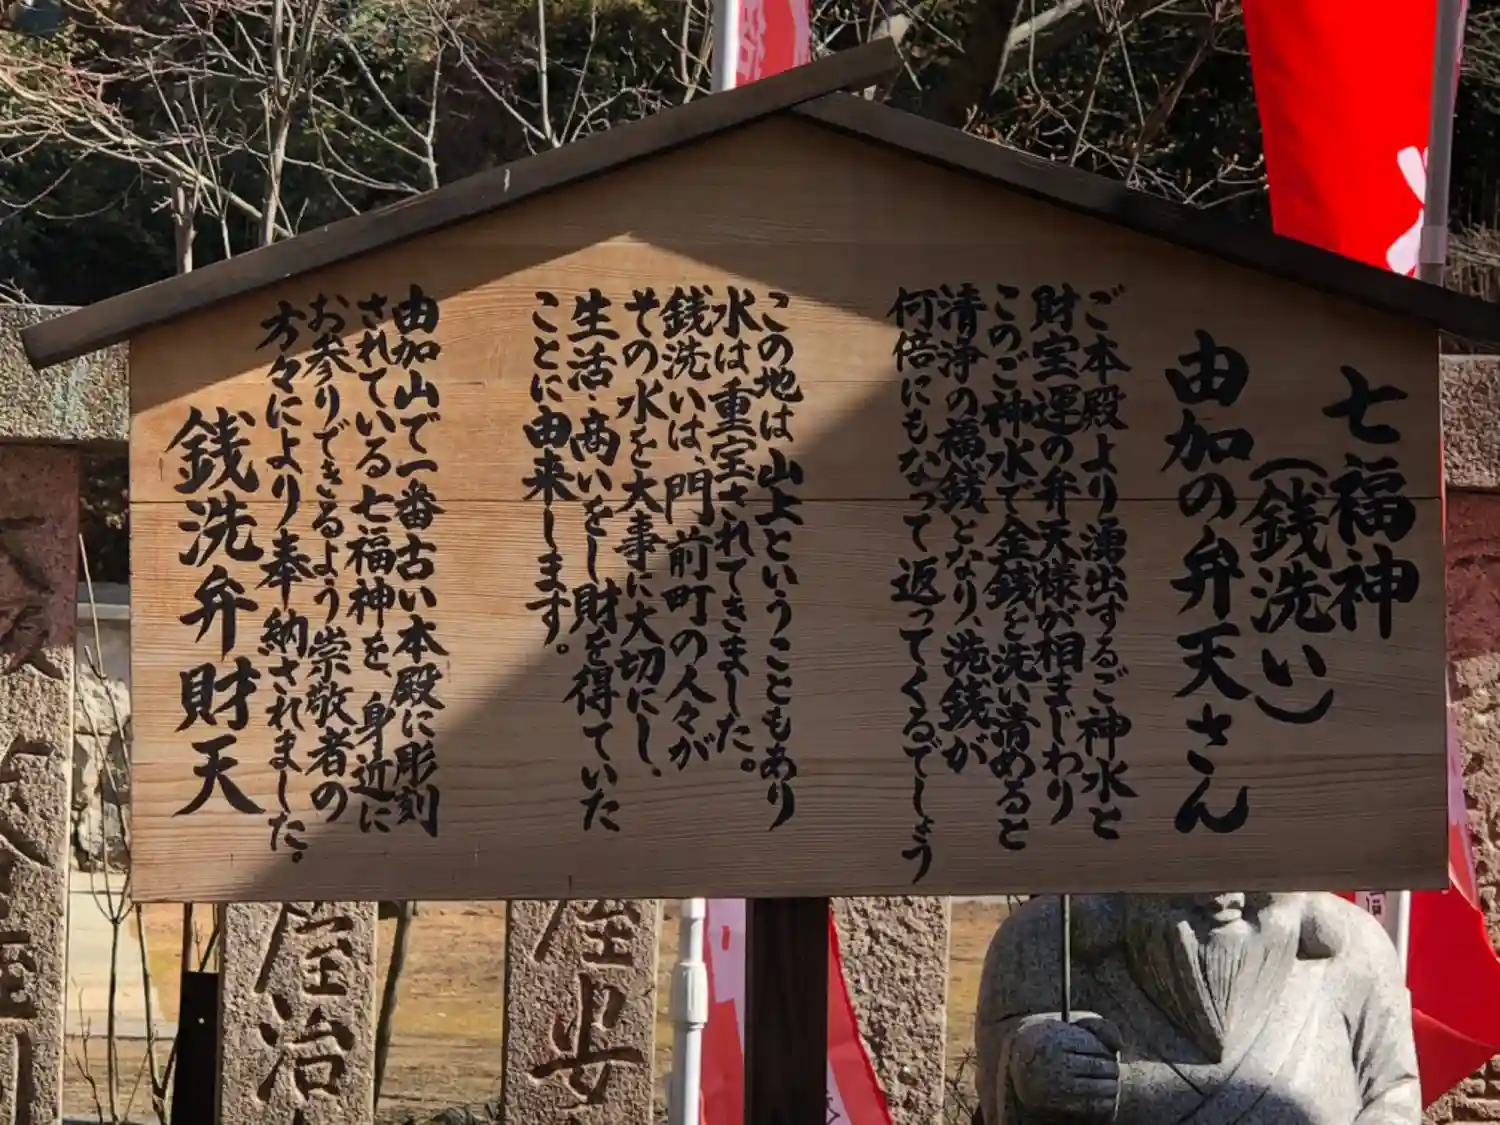 七福神
(銭洗い)
由加の弁天さん
ご本殿より湧出するご神水と
財宝運の弁天様が相まじわり
このご神水で金銭を洗い清めると
清浄の福銭となり、洗銭が
何倍にもなって返ってくるでしょう
この地は山上ということもあり
水は重宝されてきました。
銭洗いは、門前町の人々が
その水を大事に大切にし、
生活・商いをし財を得ていた
ことに由来します。
由加山で一番古い本殿に彫刻
されている七福神を、身近に
お参りできるよう崇敬者の
方々により奉納されました。
銭洗弁財天